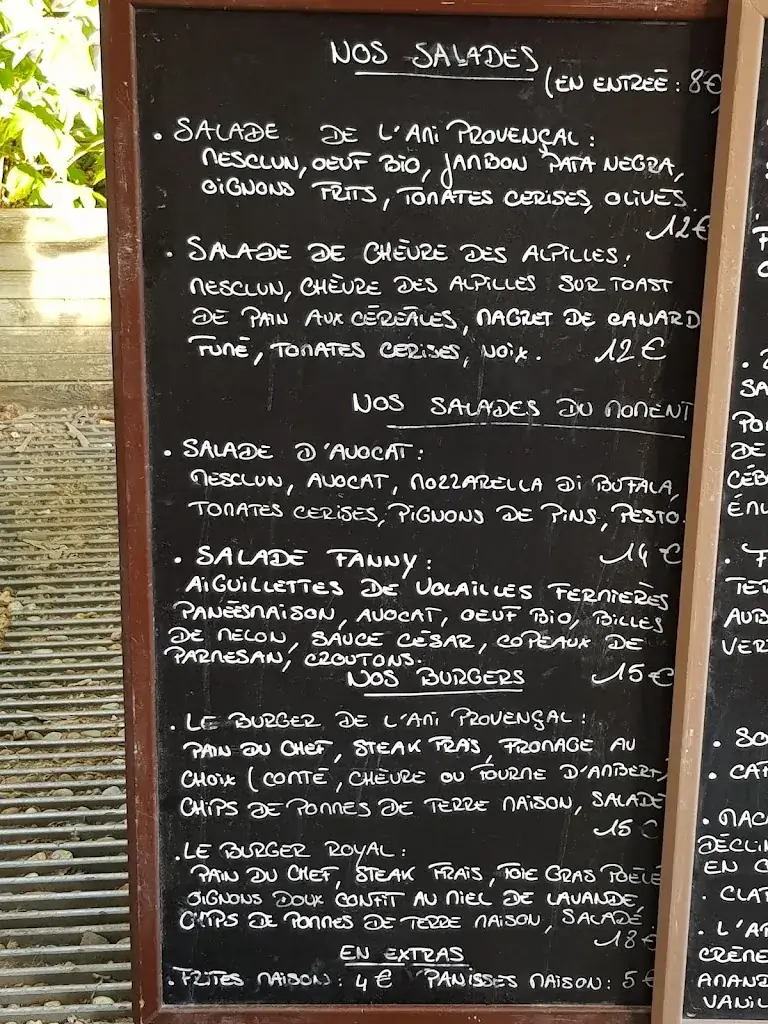 NOS SALADES
(EN ENTREÉ : 8€
. SALADE DE L'AMI PROVENÇAL :
MESCLUN, OEUF BIO, JAMBON PATA NEGRA,
OIGNONS FRITS, TOMATES CERISES, OLIVES.
12€
. SALADE DE CHÈVRE DES ALPILLES :
MESCLUN, CHÈVRE DES ALPILLES SUR TOAST
DE PAIN AUX CÉRÉALES, MAGRET DE CANARD
FUMÉ, TOMATES CERISES, NOIX. 12€
NOS SALADES DU MOMENT
. SALADE D'AVOCAT :
MESCLUN, AVOCAT, MOZZARELLA DI BUFALA,
TOMATES CERISES, PIGNONS DE PINS, PESTO.
14€
. SALADE FANNY :
AIGUILLETTES DE VOLAILLES FERMIERES
PANÉESMAISON, AVOCAT, OEUF BIO, BILLES
DE MELON, SAUCE CÉSAR, COPEAUX DE
PARMESAN, CROUTONS.
15€
NOS BURGERS
. LE BURGER DE L'AMI PROVENÇAL :
PAIN DU CHEF, STEAK FRAIS, FROMAGE AU
CHOIX (COMTÉ, CHÈVRE OU FOURME D'AMBERT)
CHIPS DE POMMES DE TERRE MAISON, SALADE
15€
. LE BURGER ROYAL :
PAIN DU CHEF, STEAK FRAIS, FOIE GRAS POÊLÉ
OIGNONS DOUX CONFIT AU MIEL DE LAVANDE,
CHIPS DE POMMES DE TERRE MAISON, SALADE.
18€
EN EXTRAS
. FRITES MAISON : 4€ PANISSES MAISON : 5€
SA
DE
TER
AUB
VER
. SO
. CAF
. MAC
DÉCLIN
EN C
. CLAF
. L'AP
CRÈME
AMAND
VANIL